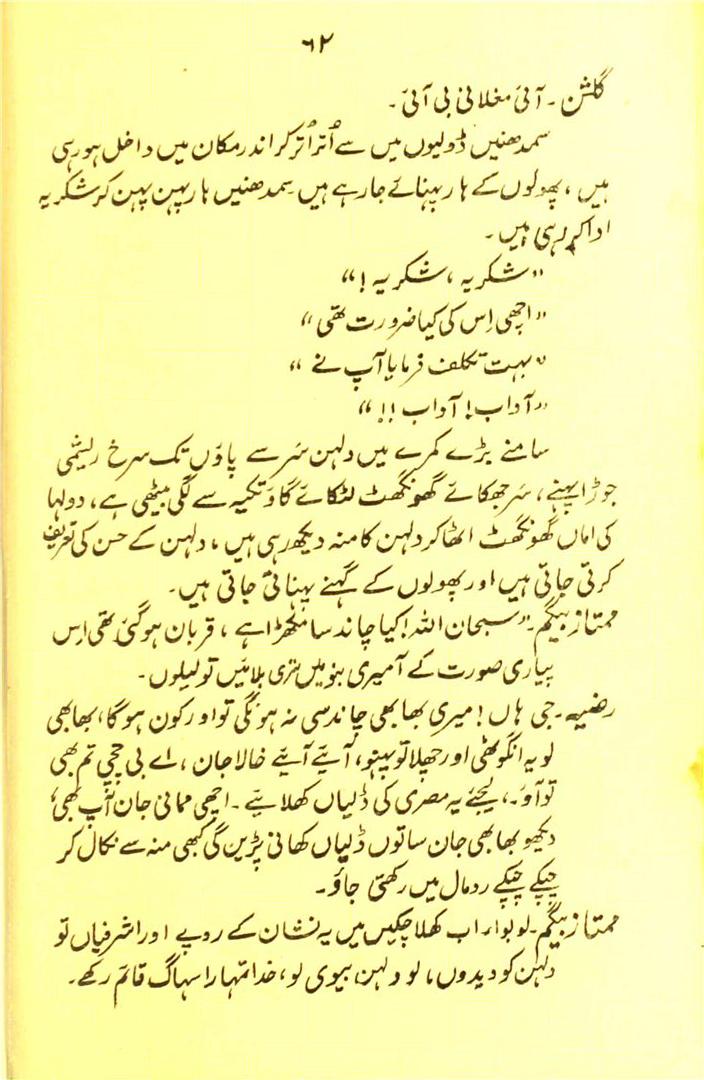 ۶۲
گلشن۔ آئی مغلانی بی آئی۔
سمدھنیں ڈولیوں میں سے اُتر اُتر کر اندر مکان میں داخل ہو رہی
ہیں، پھولوں کے ہار پہنائے جا رہے ہیں سمدھنیں ہار پہن پہن کر شکریہ
ادا کر رہی ہیں۔
"شکریہ، شکریہ!"
"اچھی اِس کی کیا ضرورت تھی"
"بہت تکلف فرمایا آپ نے"
"آداب! آداب!!"
سامنے بڑے کمرے میں دلہن سَر سے پاؤں تک سرخ ریشمی
جوڑا پہنے، سَر جھکائے گھونگھٹ لٹکائے گاؤ تکیہ سے لگی بیٹھی ہے، دولہا
کی اماں گھونگھٹ اٹھا کر دلہن کا منہ دیکھ رہی ہیں، دلہن کے حسن کی تعریف
کرتی جاتی ہیں اور پھولوں کے گہنے پہناتی جاتی ہیں۔
ممتاز بیگم۔ "سبحان اللہ! کیا چاند سا مکھڑا ہے، قربان ہو گئی تھی اِس
پیاری صورت کے آ میری بنو میں تری بلائیں تو لے لوں۔
رضیہ۔ جی ہاں! میری بھابھی چاند سی نہ ہونگی تو اور کون ہو گا، بھابھی
لو یہ انگوٹھی اور چھلا تو پہنو، آئیے آئیے خالا جان، اے بی چچی تم بھی
تو آؤ۔، لیجئے یہ مصری کی ڈلیاں کھلائیے۔ اچھی ممانی جان آپ بھی،
دیکھو بھابھی جان ساتوں ڈلیاں کھانی پڑیں گی کبھی منہ سے نکال کر
چپکے چپکے رومال میں رکھتی جاؤ۔
ممتاز بیگم۔ لو بوا، اب کھلا چکیں میں یہ نشان کے روپے اور اشرفیاں تو
دلہن کو دیدوں، لو دلہن، بیوی لو، خدا تمہارا سہاگ قائم رکھے۔